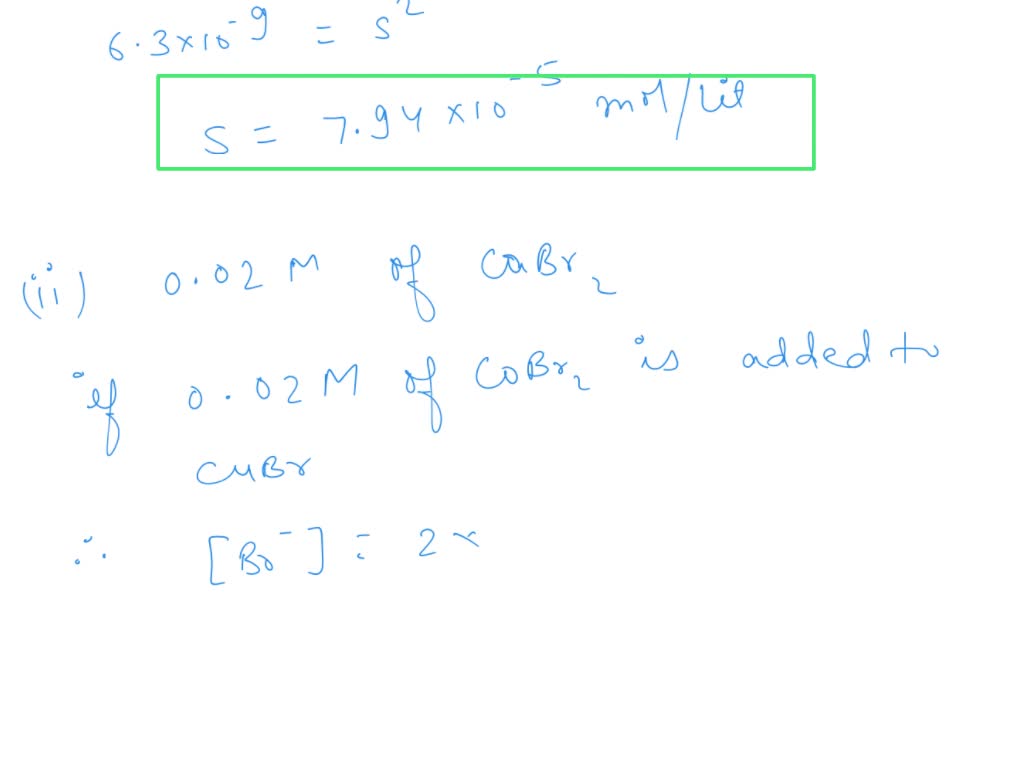 6.3×10⁻⁹ = s²
S = 7.94 ×10⁻⁵ mol/lit
(ii) 0.02 M of CaBr₂
if 0.02 M of CoBr₂ is added to
CuBr
∴ [Br⁻] = 2×